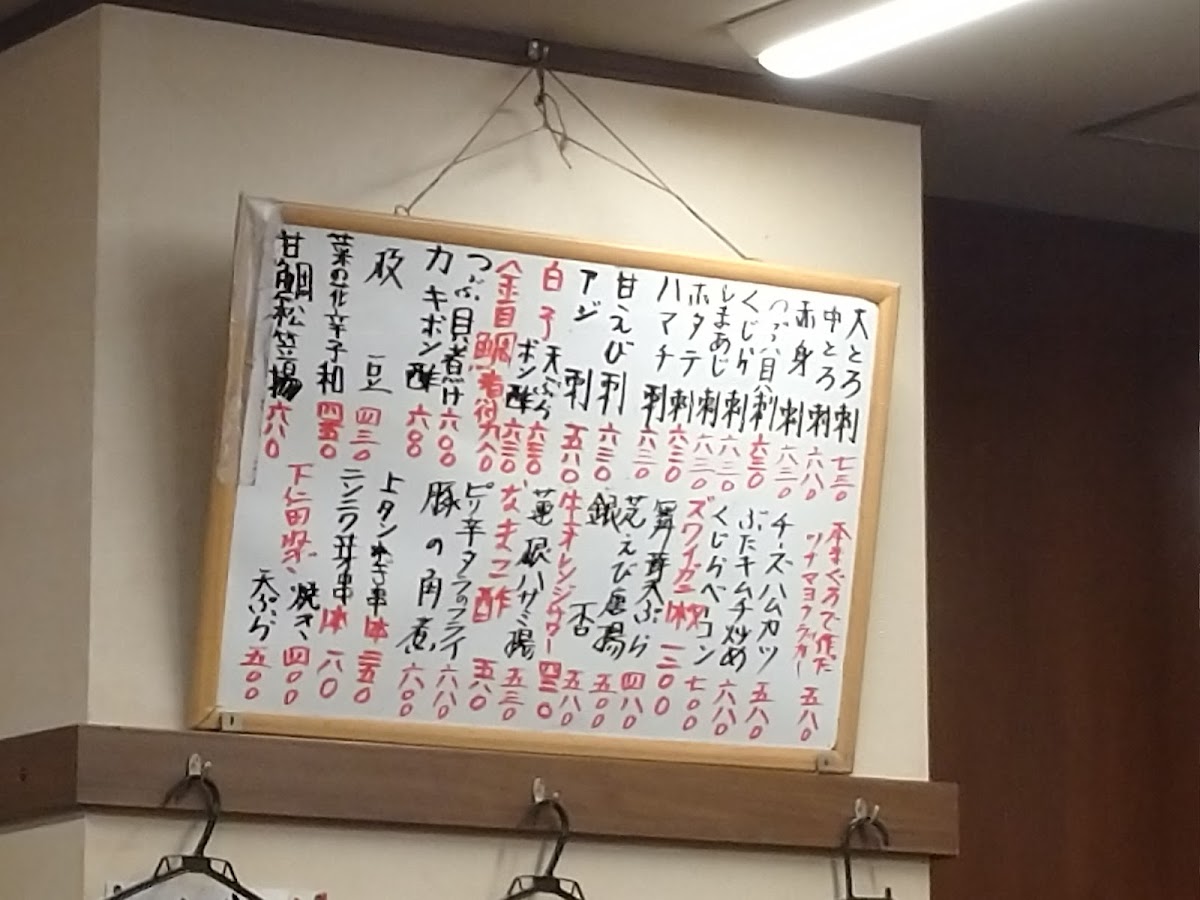 大とろ刺 七三〇
中とろ刺 六八〇
赤身刺 六三〇
つぶ貝刺 六三〇
くじら刺 六三〇
しまあじ刺 六三〇
ホタテ刺 六三〇
ハマチ刺 六三〇
甘えび刺 六三〇
アジ刺 五八〇
白子 天ぷら ポン酢 六三〇 六三〇
金目鯛煮付 九八〇
つぶ貝煮付け 六〇〇
カキポン酢 六八〇
枝豆 四三〇
菜の花辛子和 四三〇
甘鯛松笠揚 六八〇
本まぐろで作った ツナマヨクラッカー 五八〇
チーズハムカツ 五八〇
ぶたキムチ炒め 六八〇
くじらベーコン 七〇〇
ズワイガニ 一杯 一二〇〇
舞茸天ぷら 四八〇
芝えび唐揚 五〇〇
銀杏 五八〇
牛オレンジサワー 四三〇
蓮根ハサミ揚 五三〇
なまこ酢 五八〇
ピリ辛タラのフライ 六八〇
豚の角煮 六〇〇
上タンねぎ串 一本 三五〇
ニンニク芽串 一本 一八〇
下仁田ねぎ 焼き 四〇〇
天ぷら 五〇〇